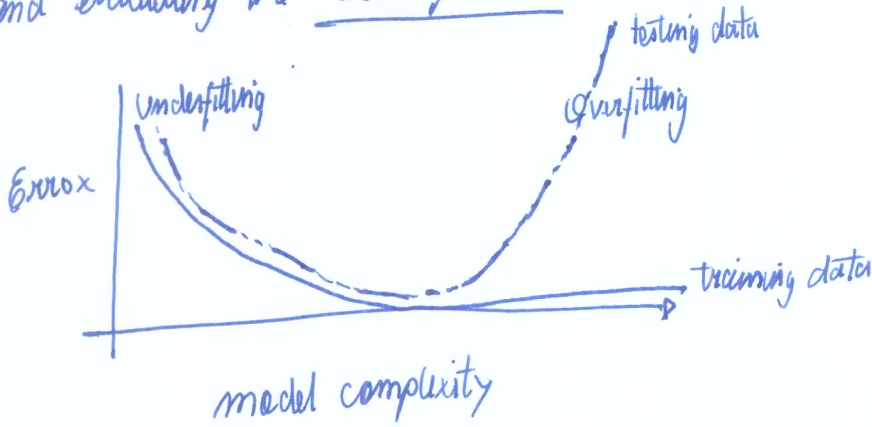 and evaluating
testing data
underfitting
Overfitting
Error
training data
model complexity